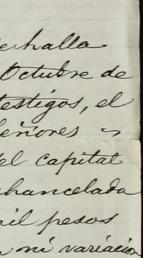 halla
Octubre de
testigos, el
Señores
el capital
chancelada
mil pesos
ni variacion